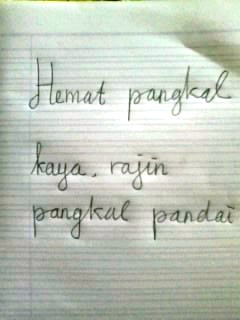 Hemat pangkal
kaya, rajin
pangkal pandai